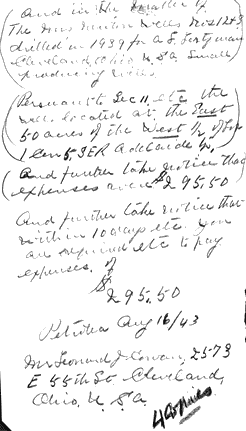 And in the matter of
The Mrs Minton Wells Nos 1 & 2
drilled in 1939 for a S. Fertyman
Cleveland, Ohio U S A Small
producing wells.
Pursuant to Sec 11, etc the
well located at the East
50 acres of the West ½ of Lot
1 Con 5 SER Adelaide Tp.
And further take notice that
expenses were $295.50
And further take notice that
within 10 days etc. you
are required etc to pay
expenses, of
$295.50
Petrolea Aug 16/43
Mr Leonard J. Cowan, 2573
E 55th St. Cleveland,
Ohio, U. S. A
4 Copies